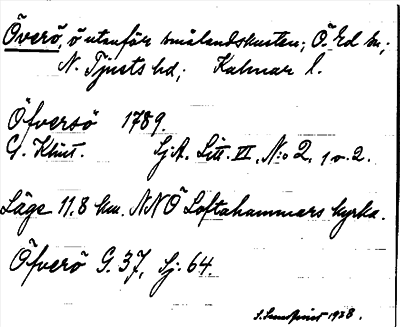 Överö, ö utanför smålandskusten; Ö. Ed sn;
N. Tjusts hd; Kalmar l.
Öfversö 1789.
G. Klint. Sj.A. Litt. VI, N:o 2, 1 o. 2.
Läge 11.8 km. NNÖ Loftahammars kyrka.
Öfverö G. 37, Sj. 64.
1938.